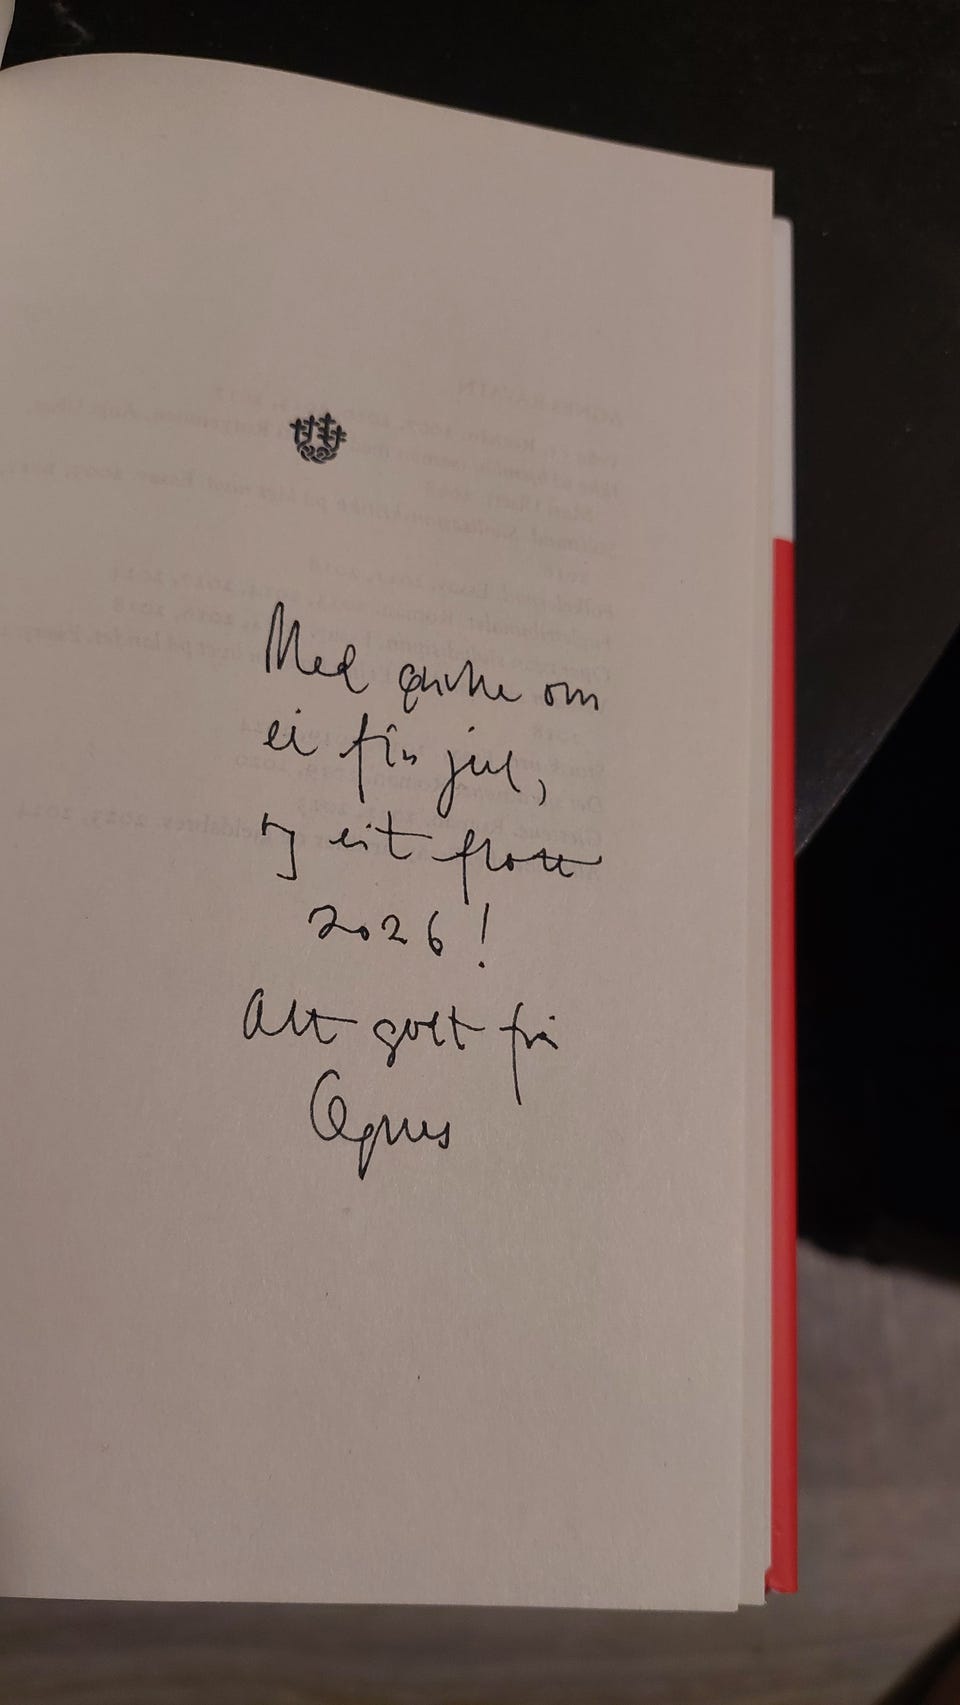 Med ønske om
ei fin jul,
og eit flott
2026!
Alt godt frå
Agnes